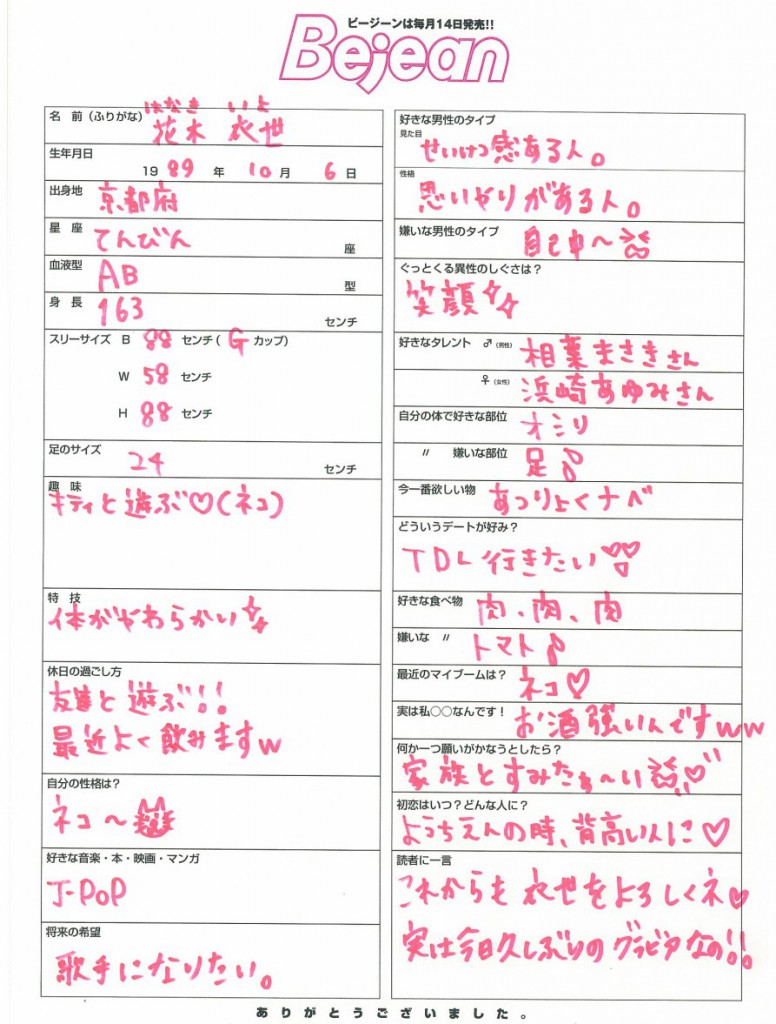 ビージーンは毎月14日発売!!
Bejean
名 前 (ふりがな) はなき いよ
花木 衣世
生年月日
1989年 10月 6日
出身地 京都府
星 座 てんびん 座
血液型 AB 型
身 長 163 センチ
スリーサイズ B 88 センチ( G カップ)
W 58 センチ
H 88 センチ
足のサイズ 24 センチ
趣 味
キティと遊ぶ♡(ネコ)
特 技
体がやわらかい
休日の過ごし方
友達と遊ぶ!!
最近よく飲みますw
自分の性格は?
ネコ〜
好きな音楽・本・映画・マンガ
J-POP
将来の希望
歌手になりたい。
好きな男性のタイプ
見た目 せいけつ感ある人。
性格
思いやりがある人。
嫌いな男性のタイプ 自己中〜
ぐっとくる異性のしぐさは?
笑顔
好きなタレント ♂(男性) 相葉まさきさん
♀(女性) 浜崎あゆみさん
自分の体で好きな部位 オシリ
〃 嫌いな部位 足♪
今一番欲しい物 あつりょくナベ
どういうデートが好み?
TDL行きたい♡♡
好きな食べ物 肉、肉、肉
嫌いな 〃 トマト♪
最近のマイブームは? ネコ♡
実は私○○なんです! お酒強いんですww
何か一つ願いがかなうとしたら?
家族とすみたぁ〜い♡
初恋はいつ?どんな人に?
ようちえんの時、背高い人に♡
読者に一言
これからも衣世をよろしくネ♥
実は今日久しぶりのグラビアなの!!
ありがとうございました。